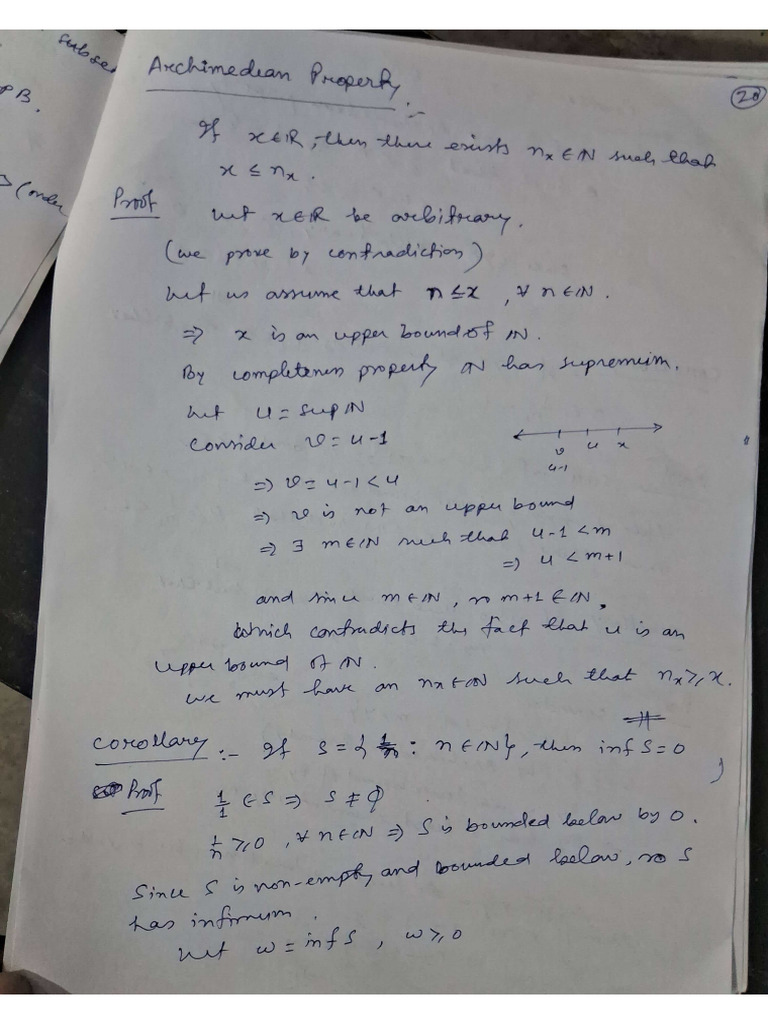 subse
PB.
(order
20
Archimedean Property :-
If x∈ℝ, then there exists nₓ∈ℕ such that
x ≤ nₓ.
Proof Let x∈ℝ be arbitrary.
(we prove by contradiction)
Let us assume that n ≤ x , ∀ n∈ℕ.
⇒ x is an upper bound of ℕ.
By completeness property ℕ has supremum.
Let u = sup ℕ
Consider v = u-1
v u x
u-1
⇒ v = u-1 < u
⇒ v is not an upper bound
⇒ ∃ m∈ℕ such that u-1 < m
⇒ u < m+1
and since m∈ℕ, so m+1 ∈ℕ,
Which contradicts the fact that u is an
upper bound of ℕ.
We must have an nₓ∈ℕ such that nₓ ≥ x.
Corollary :- If S = { 1/n : n∈ℕ}, then inf S = 0
Proof 1/1 ∈ S ⇒ S ≠ ϕ
1/n ≥ 0, ∀ n∈ℕ ⇒ S is bounded below by 0.
Since S is non-empty and bounded below, so S
has infimum.
Let w = inf S , w ≥ 0